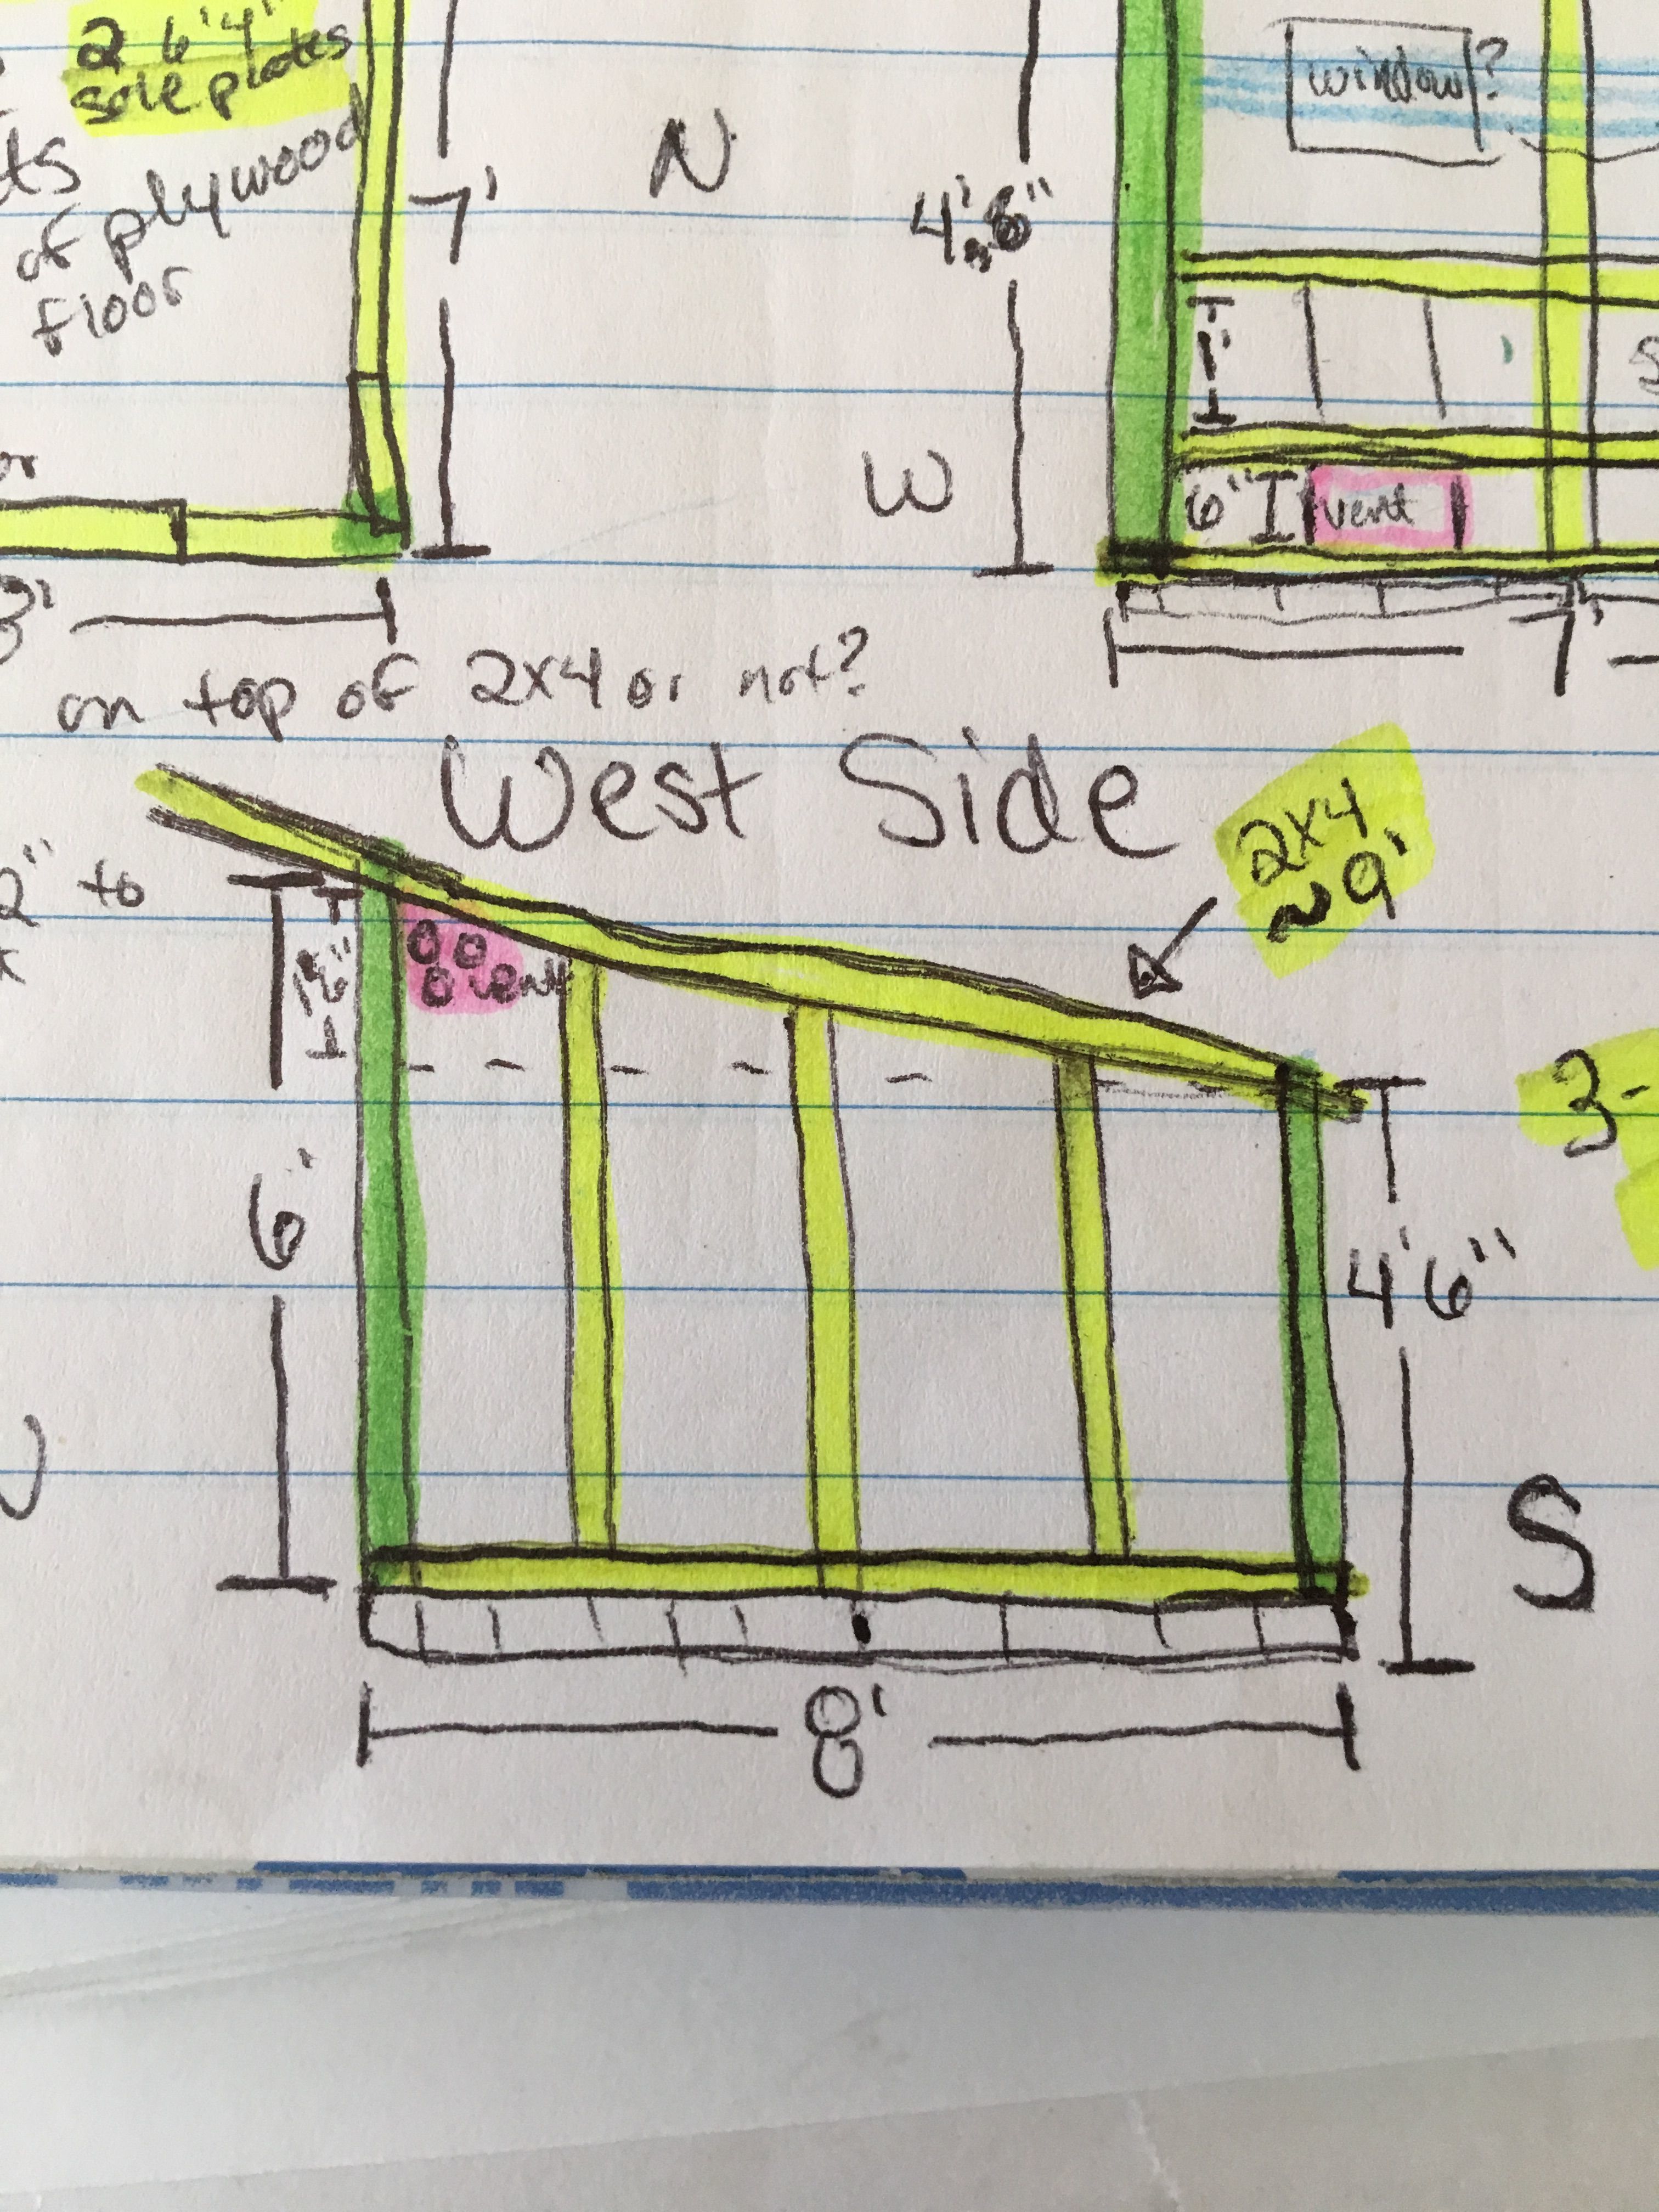 2 6'4"
sole plates
of plywood
floor
7'
N
4'6"
W
window?
1'
6"
vent
7'
3'
on top of 2x4 or not?
West Side
2x4
~9'
2" to
18"
vent
6'
4'6"
3-
S
8'